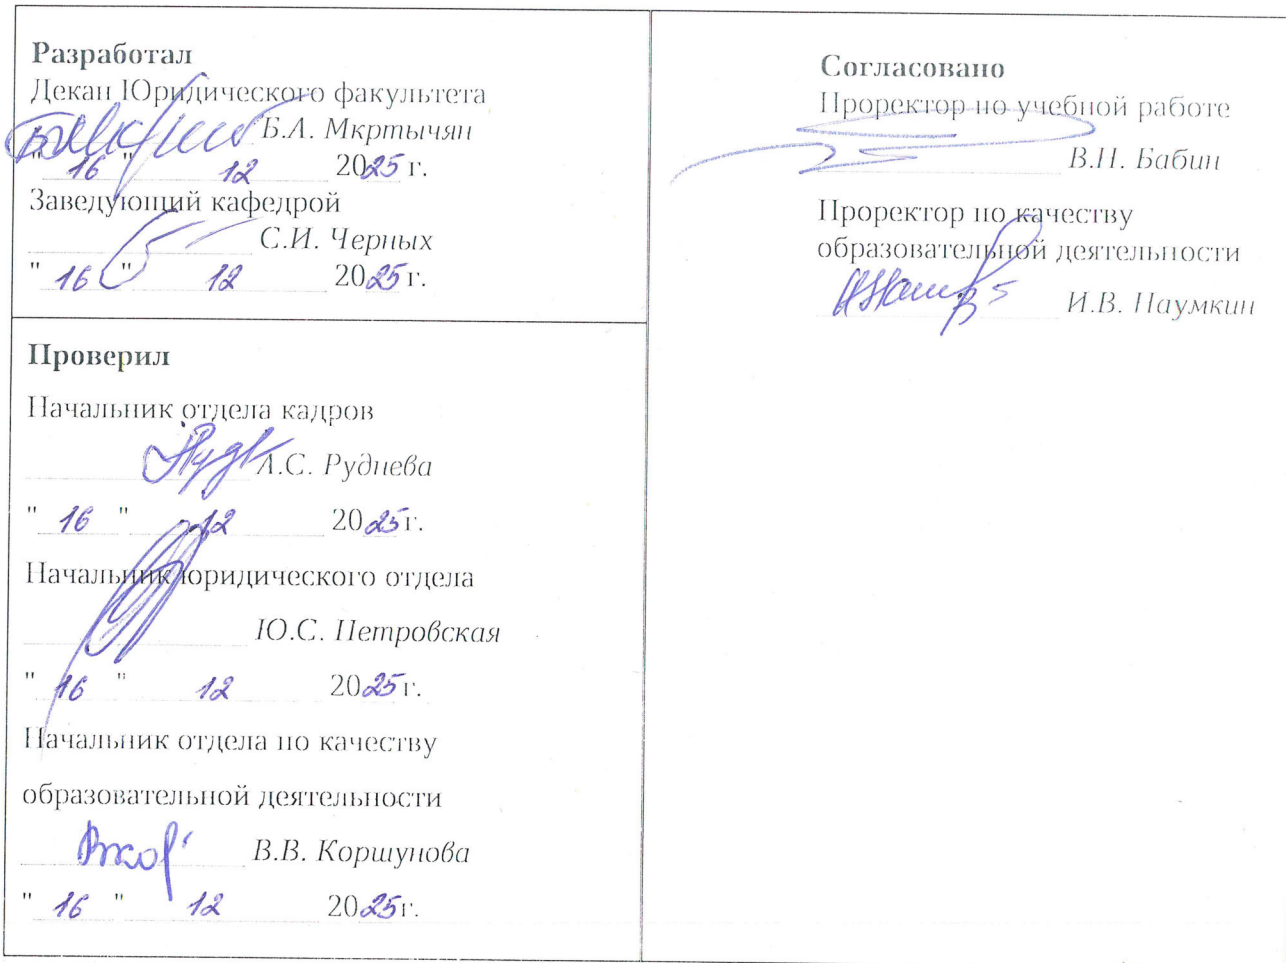 Разработал
Декан Юридического факультета
Б.А. Мкртычян
" 16 " 12 2025 г.
Заведующий кафедрой
С.И. Черных
" 16 " 12 2025 г.
Проверил
Начальник отдела кадров
А.С. Руднева
" 16 " 12 2025 г.
Начальник юридического отдела
Ю.С. Петровская
" 16 " 12 2025 г.
Начальник отдела по качеству
образовательной деятельности
В.В. Коршунова
" 16 " 12 2025 г.
Согласовано
Проректор по учебной работе
В.П. Бабин
Проректор по качеству
образовательной деятельности
И.В. Наумкин